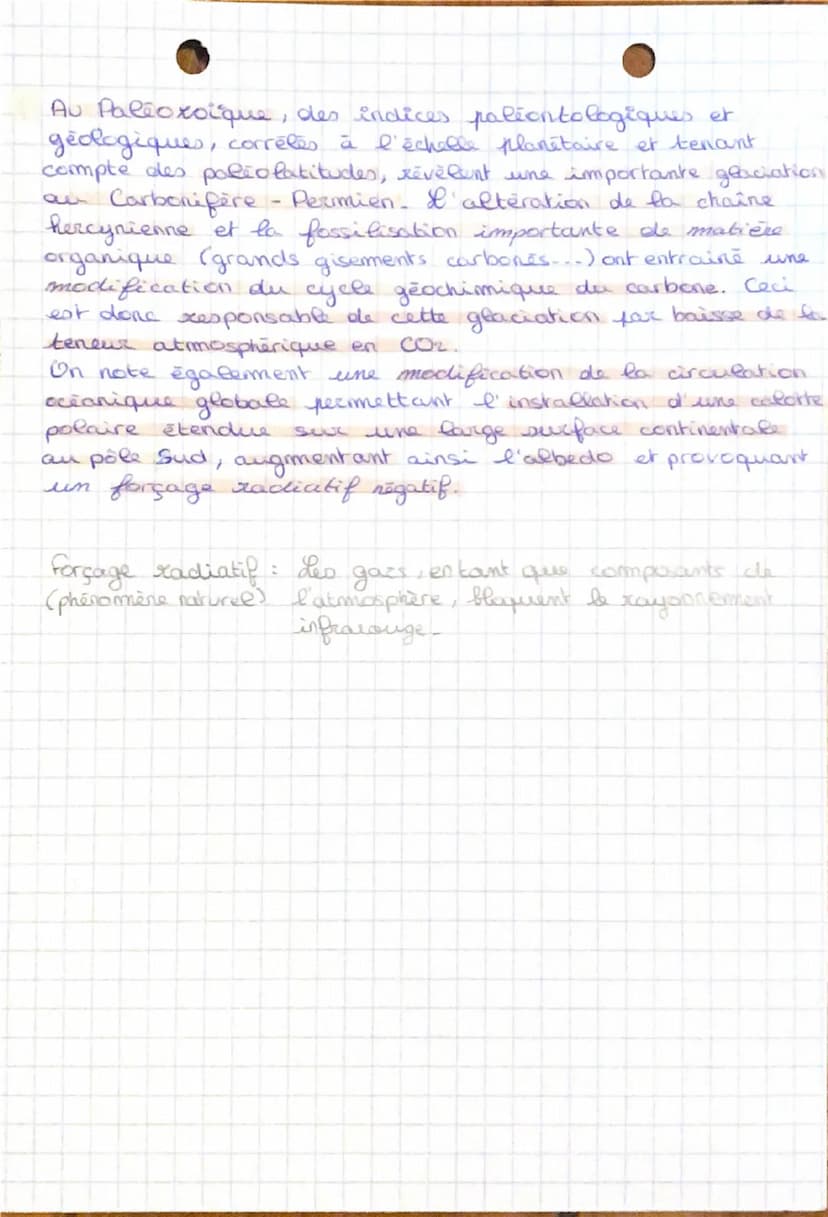 Au Paléozoïque, des indices paléontologiques et
géologiques, corrélés à l'échelle planétaire et tenant
compte des paléolatitudes, révèlent une importante glaciation
au Carbonifère - Permien. L'altération de la chaîne
hercynienne et la fossilisation importante de matière
organique (grands gisements carbonés...) ont entrainé une
modification du cycle géochimique du carbone. Ceci
est donc responsable de cette glaciation par baisse de la
teneur atmosphérique en CO2.
On note également une modification de la circulation
océanique globale permettant l'installation d'une calotte
polaire étendue sur une large surface continentale
au pôle Sud, augmentant ainsi l'albedo et provoquant
un forçage radiatif négatif.
Forçage radiatif : Les gazs, en tant que composants de
(phénomène naturel) l'atmosphère, bloquent le rayonnement
infrarouge.